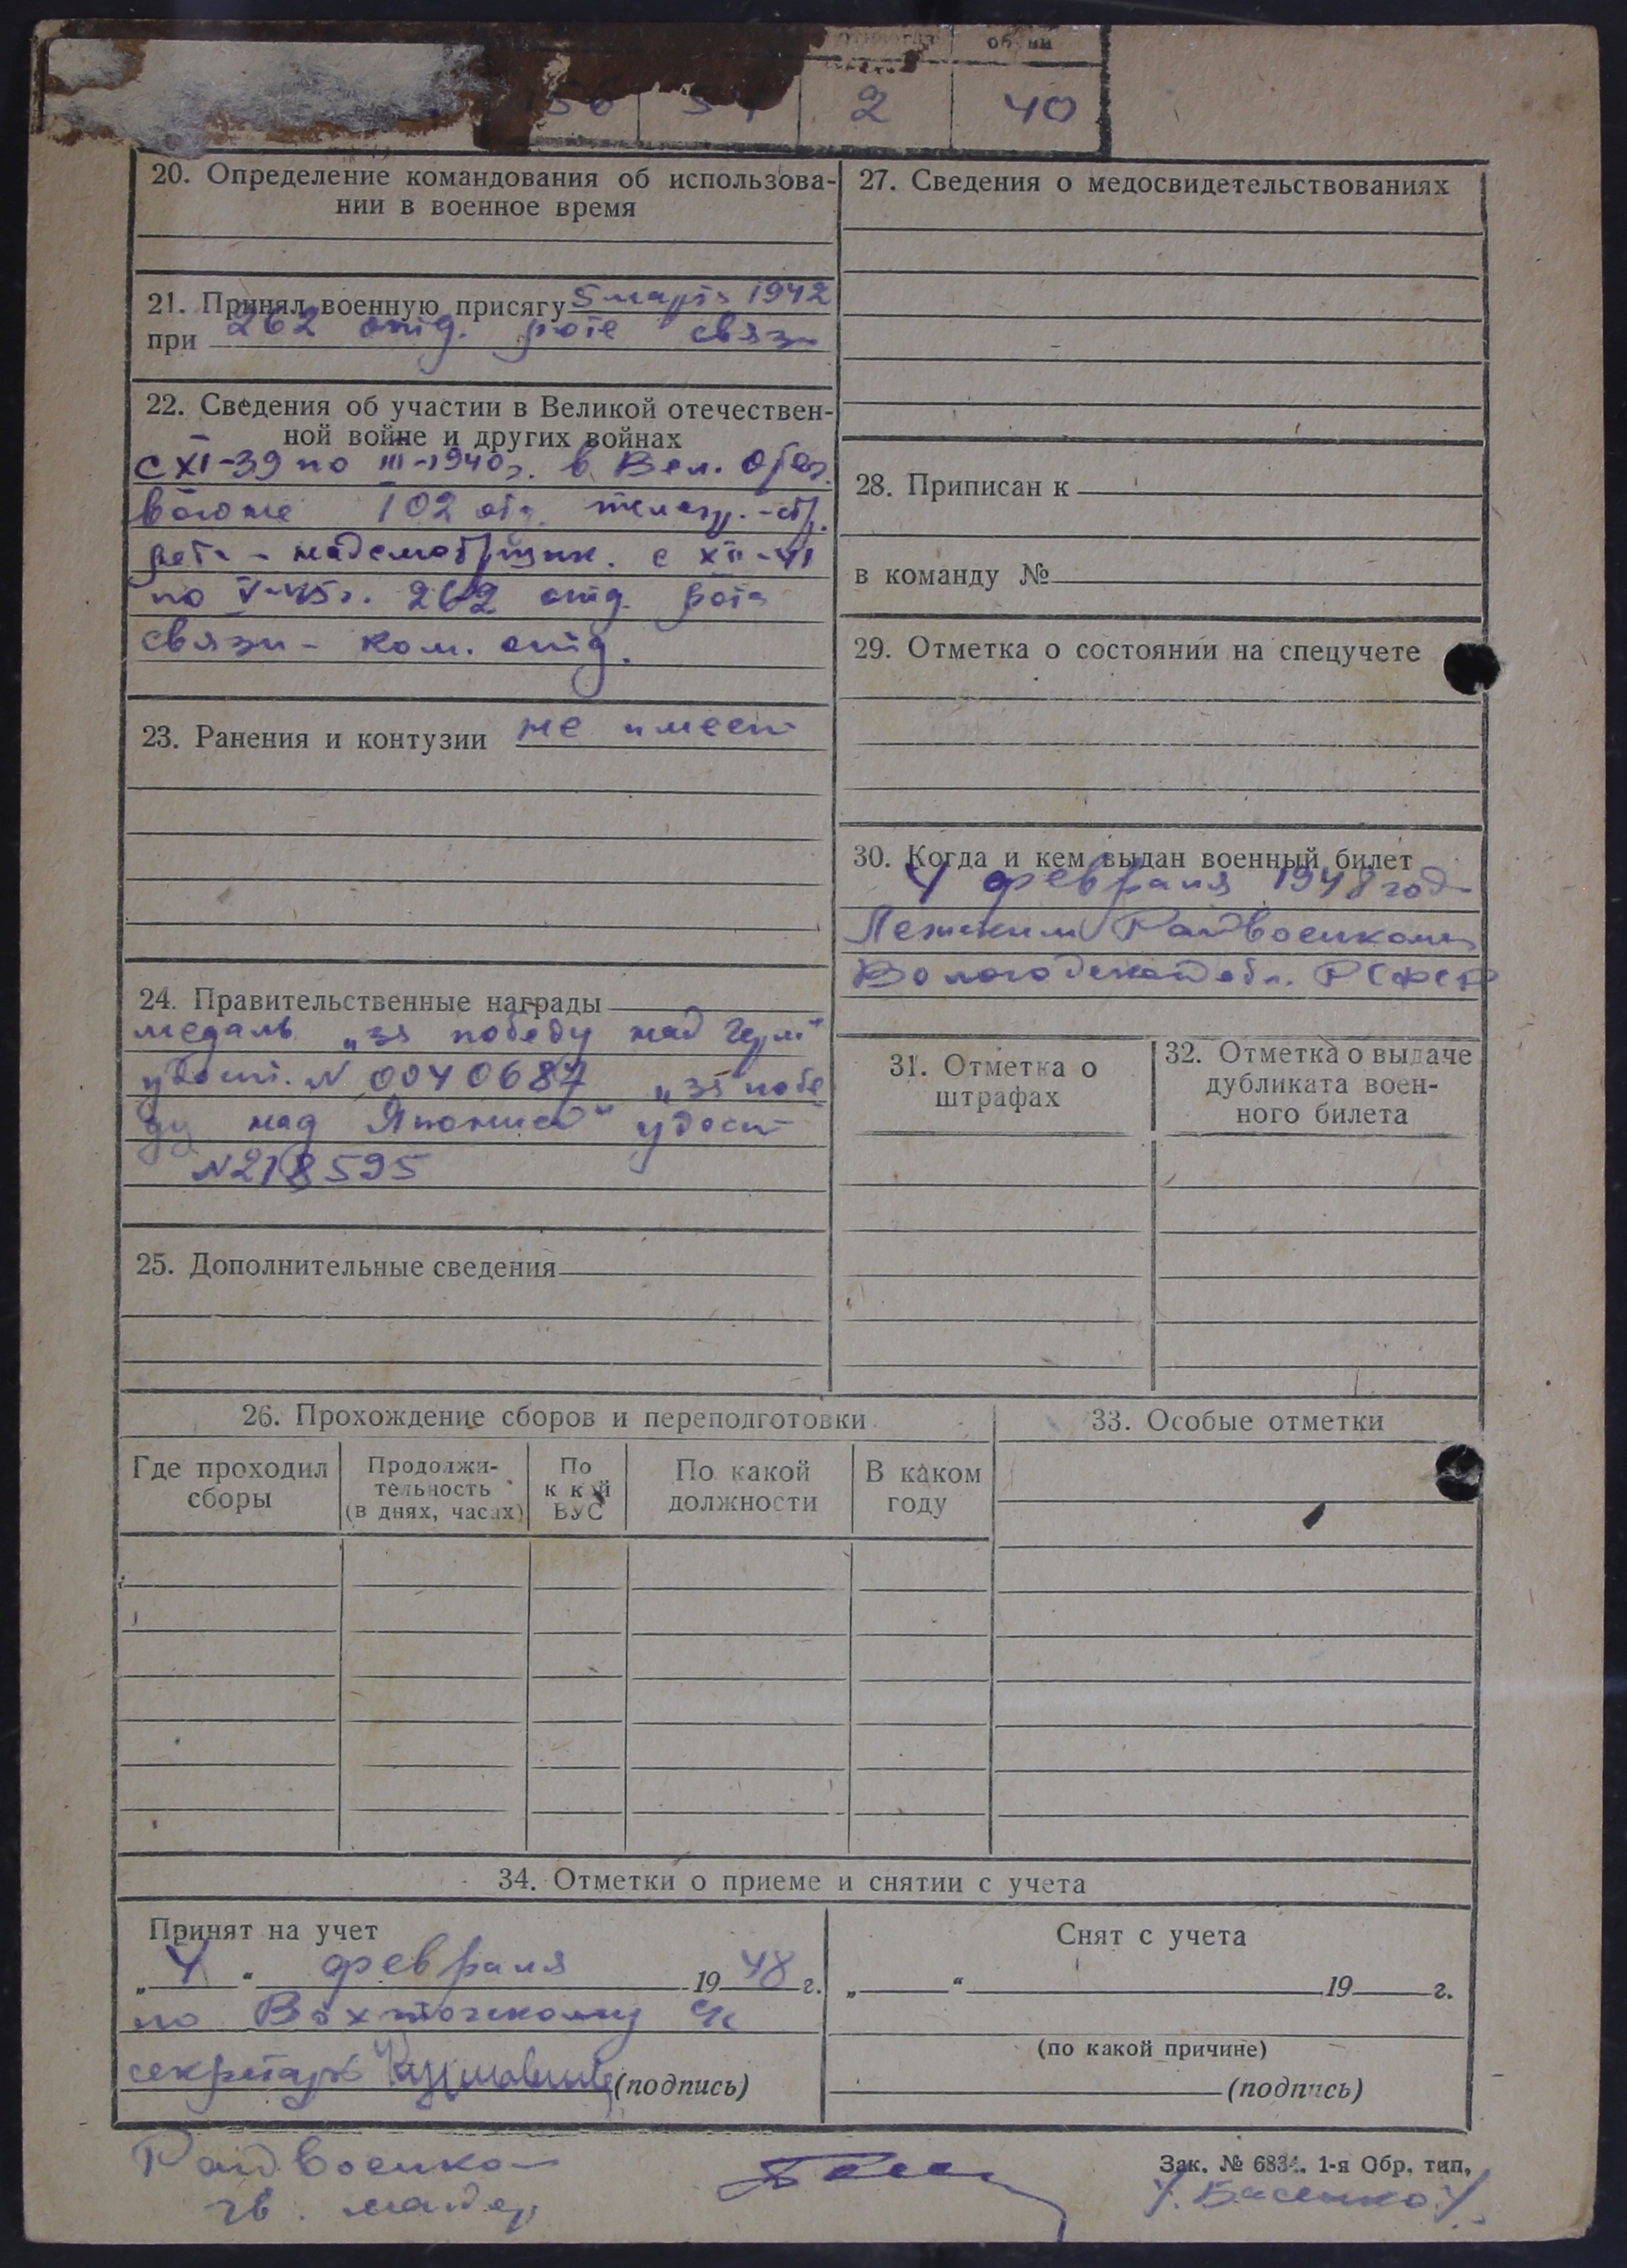 обуви
2 40
20. Определение командования об использова-
нии в военное время
21. Принял военную присягу 5 марта 1942
при 262 отд. роте связи
22. Сведения об участии в Великой отечествен-
ной войне и других войнах
с XI-39 по III-1940г. в Вел. Отеч.
войне 102 отд. телегр.-стр.
рота - надсмотрщик. с XII-41
по V-45г. 262 отд. рота
связи - ком. отд.
23. Ранения и контузии не имеет
24. Правительственные награды
медаль „за победу над Герм"
удост. N 0040687 „за побе
ду над Японией" удост
N218595
25. Дополнительные сведения
27. Сведения о медосвидетельствованиях
28. Приписан к
в команду №
29. Отметка о состоянии на спецучете
30. Когда и кем выдан военный билет
4 февраля 1948 года
Лежским Райвоенкомат
Вологодской обл. РСФСР
31. Отметка о
штрафах
32. Отметка о выдаче
дубликата воен-
ного билета
26. Прохождение сборов и переподготовки
Где проходил
сборы
Продолжи-
тельность
(в днях, часах)
По
какой
ВУС
По какой
должности
В каком
году
33. Особые отметки
34. Отметки о приеме и снятии с учета
Принят на учет
„4" февраля 1948 г.
по Вохточскому с/с
секретарь (подпись)
Снят с учета
„ " 19 г.
(по какой причине)
(подпись)
Райвоенком
гв. майор
Зак. № 6834. 1-я Обр. тип.
/Басенко/